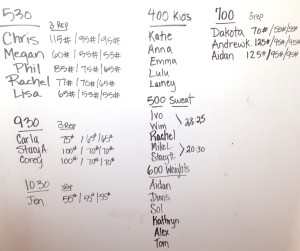 530 3 Rep
Chris 115# / 95# / 95#
Megan 60# / 55# / 55#
Phil 85# / 75# / 65#
Rachel 77# / 70# / 65#
Lisa 65# / 55# / 55#
930 3 Rep
Carla 75# / 65# / 65#
Stacy A 100# / 70# / 70#
Corey 100# / 70# / 70#
1030 3 Rep
Jen 55# / 55# / 55#
400 Kids
Katie
Anna
Emma
Lulu
Lainey
500 Sweat
Ivo
Wim
Rachel
Mike L
Stacy H. 20:30
600 Weights
Aidan
Doris
Sol
Kathryn
Alex
Tom
700 3 rep
Dakota 70# / 55# / 55#
Andrewk 125# / 95# / 95#
Aidan 125# / 95# / 95#